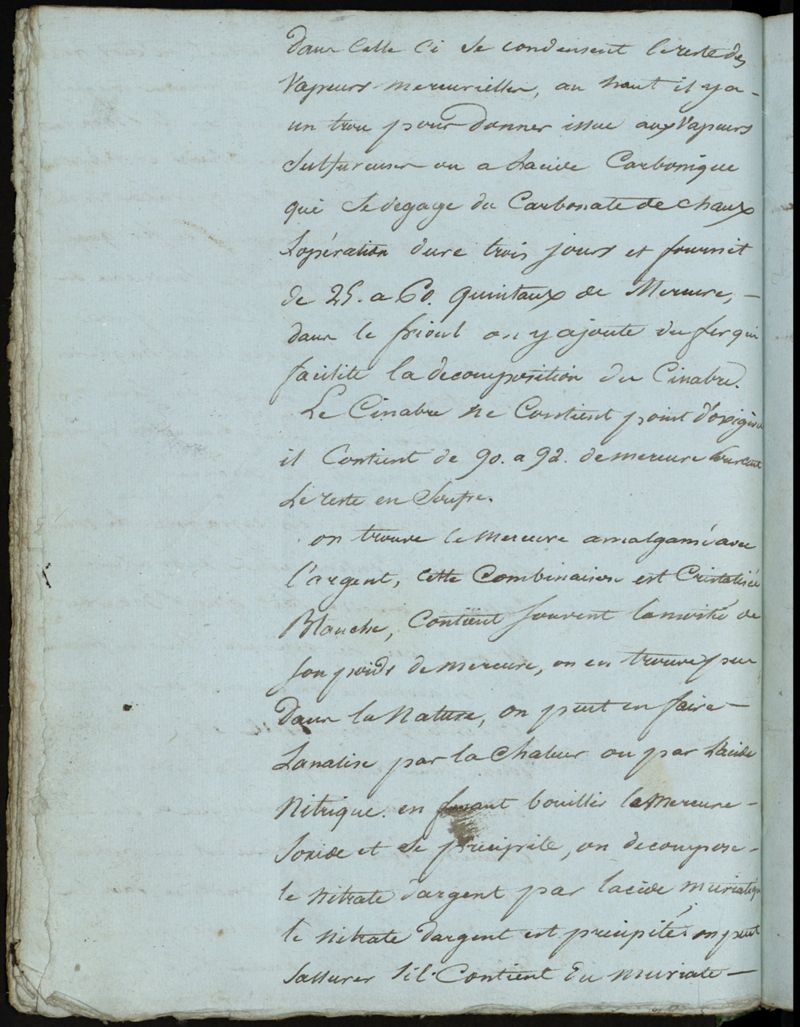 dans celle ci se condensent le reste des
Vapeurs mercurielles, au haut il y a –
un trou pour donner issue aux Vapeurs
Sulfureuses ou a Lacide Carbonique
qui se degage du Carbonate de chaux
Lopération dure trois jours et fournit
de 25. a 60. quintaux de Mercure, –
dans le frioul on y ajoute du fer qui
facilite la decomposition du Cinabre.
Le Cinabre ne Contient point d'oxigène
il Contient de 90. a 92. de mercure
Le reste en Soufre.
on trouve le mercure amalgamé avec
l'argent, cette Combinaison est Cristalisée
Blanche, Contient souvent la moitié de
son poids de mercure, on en trouve peu
dans la Nature, on peut en faire –
Lanalise par la Chaleur ou par Lacide
Nitrique. en faisant bouillir le Mercure –
Soxide et se précipite, on decompose –
le nitrate d'argent par lacide muriatique
le nitrate d'argent est précipité, on peut
sassurer sil Contient du muriate –